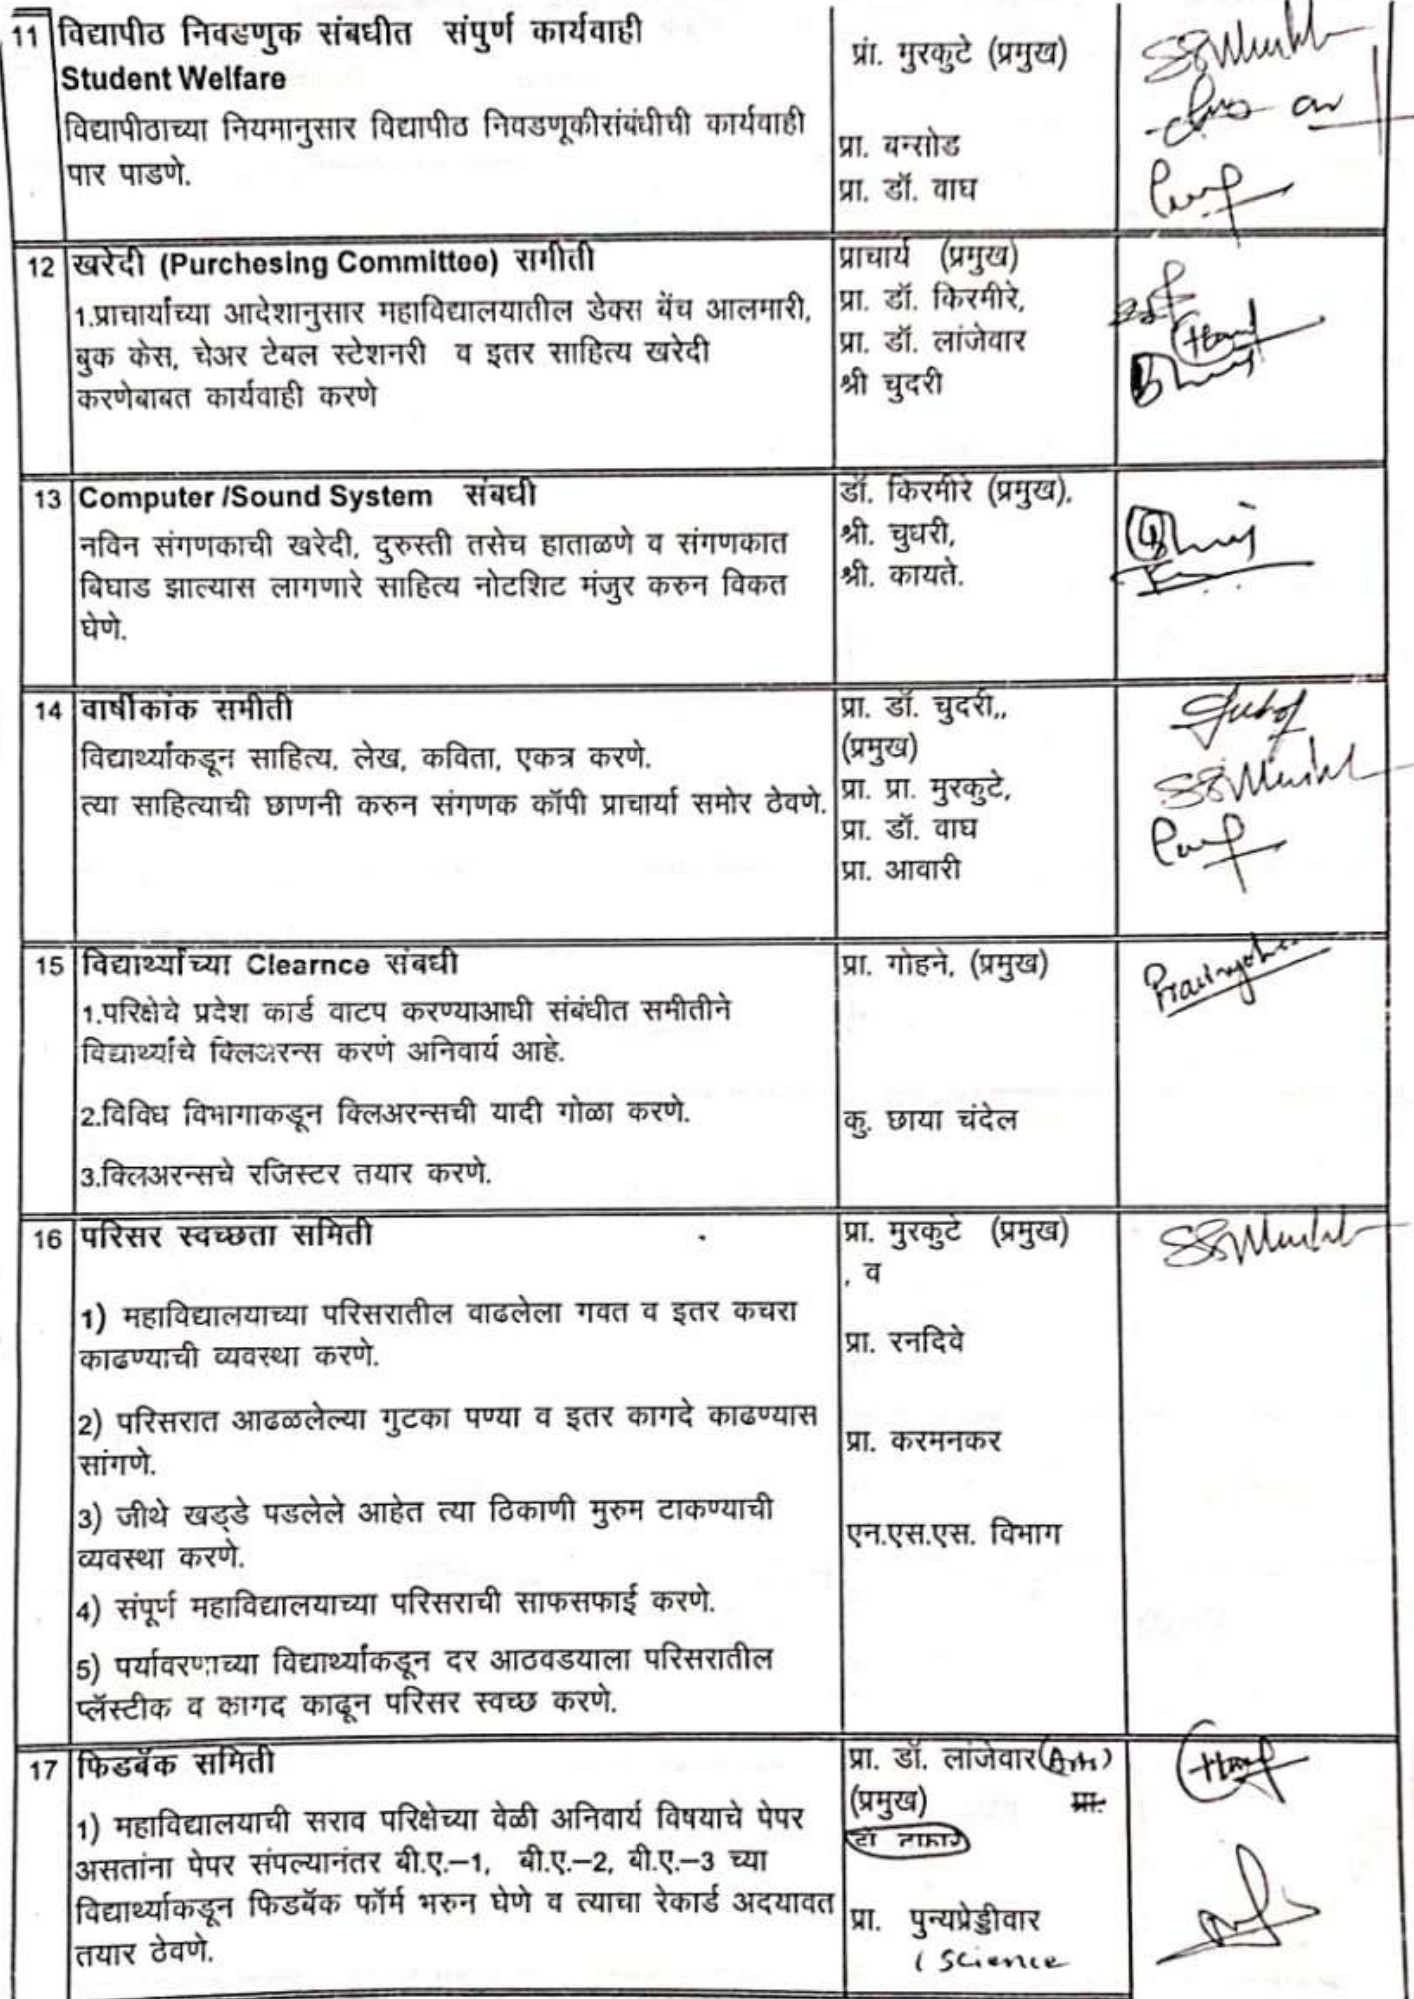 11 विद्यापीठ निवडणुक संबधीत संपुर्ण कार्यवाही
Student Welfare
विद्यापीठाच्या नियमानुसार विद्यापीठ निवडणूकीसंबंधीची कार्यवाही
पार पाडणे.
प्रां. मुरकुटे (प्रमुख)
प्रा. बन्सोड
प्रा. डॉ. वाघ
12 खरेदी (Purchesing Committee) समीती
1.प्राचार्यांच्या आदेशानुसार महाविद्यालयातील डेक्स बेंच आलमारी,
बुक केस, चेअर टेबल स्टेशनरी व इतर साहित्य खरेदी
करणेबाबत कार्यवाही करणे
प्राचार्य (प्रमुख)
प्रा. डॉ. किरमीरे,
प्रा. डॉ. लांजेवार
श्री चुदरी
13 Computer /Sound System संबधी
नविन संगणकाची खरेदी, दुरुस्ती तसेच हाताळणे व संगणकात
बिघाड झाल्यास लागणारे साहित्य नोटशिट मंजुर करुन विकत
घेणे.
डॉ. किरमीरे (प्रमुख),
श्री. चुधरी,
श्री. कायते.
14 वार्षीकांक समीती
विद्यार्थ्यांकडून साहित्य, लेख, कविता, एकत्र करणे.
त्या साहित्याची छाणनी करुन संगणक कॉपी प्राचार्या समोर ठेवणे.
प्रा. डॉ. चुदरी,,
(प्रमुख)
प्रा. प्रा. मुरकुटे,
प्रा. डॉ. वाघ
प्रा. आवारी
15 विद्यार्थ्यांच्या Clearnce संबधी
1.परिक्षेचे प्रदेश कार्ड वाटप करण्याआधी संबंधीत समीतीने
विद्यार्थ्यांचे क्लिअरन्स करणे अनिवार्य आहे.
2.विविध विभागाकडून क्लिअरन्सची यादी गोळा करणे.
3.क्लिअरन्सचे रजिस्टर तयार करणे.
प्रा. गोहने, (प्रमुख)
कु. छाया चंदेल
16 परिसर स्वच्छता समिती
1) महाविद्यालयाच्या परिसरातील वाढलेला गवत व इतर कचरा
काढण्याची व्यवस्था करणे.
2) परिसरात आढळलेल्या गुटका पण्या व इतर कागदे काढण्यास
सांगणे.
3) जीथे खड्डे पडलेले आहेत त्या ठिकाणी मुरुम टाकण्याची
व्यवस्था करणे.
4) संपूर्ण महाविद्यालयाच्या परिसराची साफसफाई करणे.
5) पर्यावरणाच्या विद्यार्थ्यांकडून दर आठवडयाला परिसरातील
प्लॅस्टीक व कागद काढून परिसर स्वच्छ करणे.
प्रा. मुरकुटे (प्रमुख)
, व
प्रा. रनदिवे
प्रा. करमनकर
एन.एस.एस. विभाग
17 फिडबॅक समिती
1) महाविद्यालयाची सराव परिक्षेच्या वेळी अनिवार्य विषयाचे पेपर
असतांना पेपर संपल्यानंतर बी.ए.–1, बी.ए.–2, बी.ए.–3 च्या
विद्यार्थ्याकडून फिडबॅक फॉर्म भरुन घेणे व त्याचा रेकार्ड अदयावत
तयार ठेवणे.
प्रा. डॉ. लांजेवार (Arts)
(प्रमुख) प्रा.
प्रा. पुन्यप्रेड्डीवार
( Science